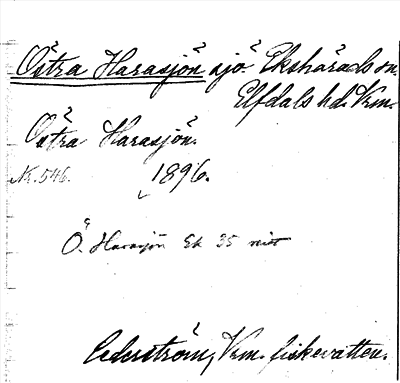 Östra Harasjön sjö. Ekshärads sn.
Elfdals hd. Vrm.
Östra Harasjön.
Nr. 546. 1896.
Ö. Harasjön Ek 35 mst
Cederström, Vrm. fiskevatten.